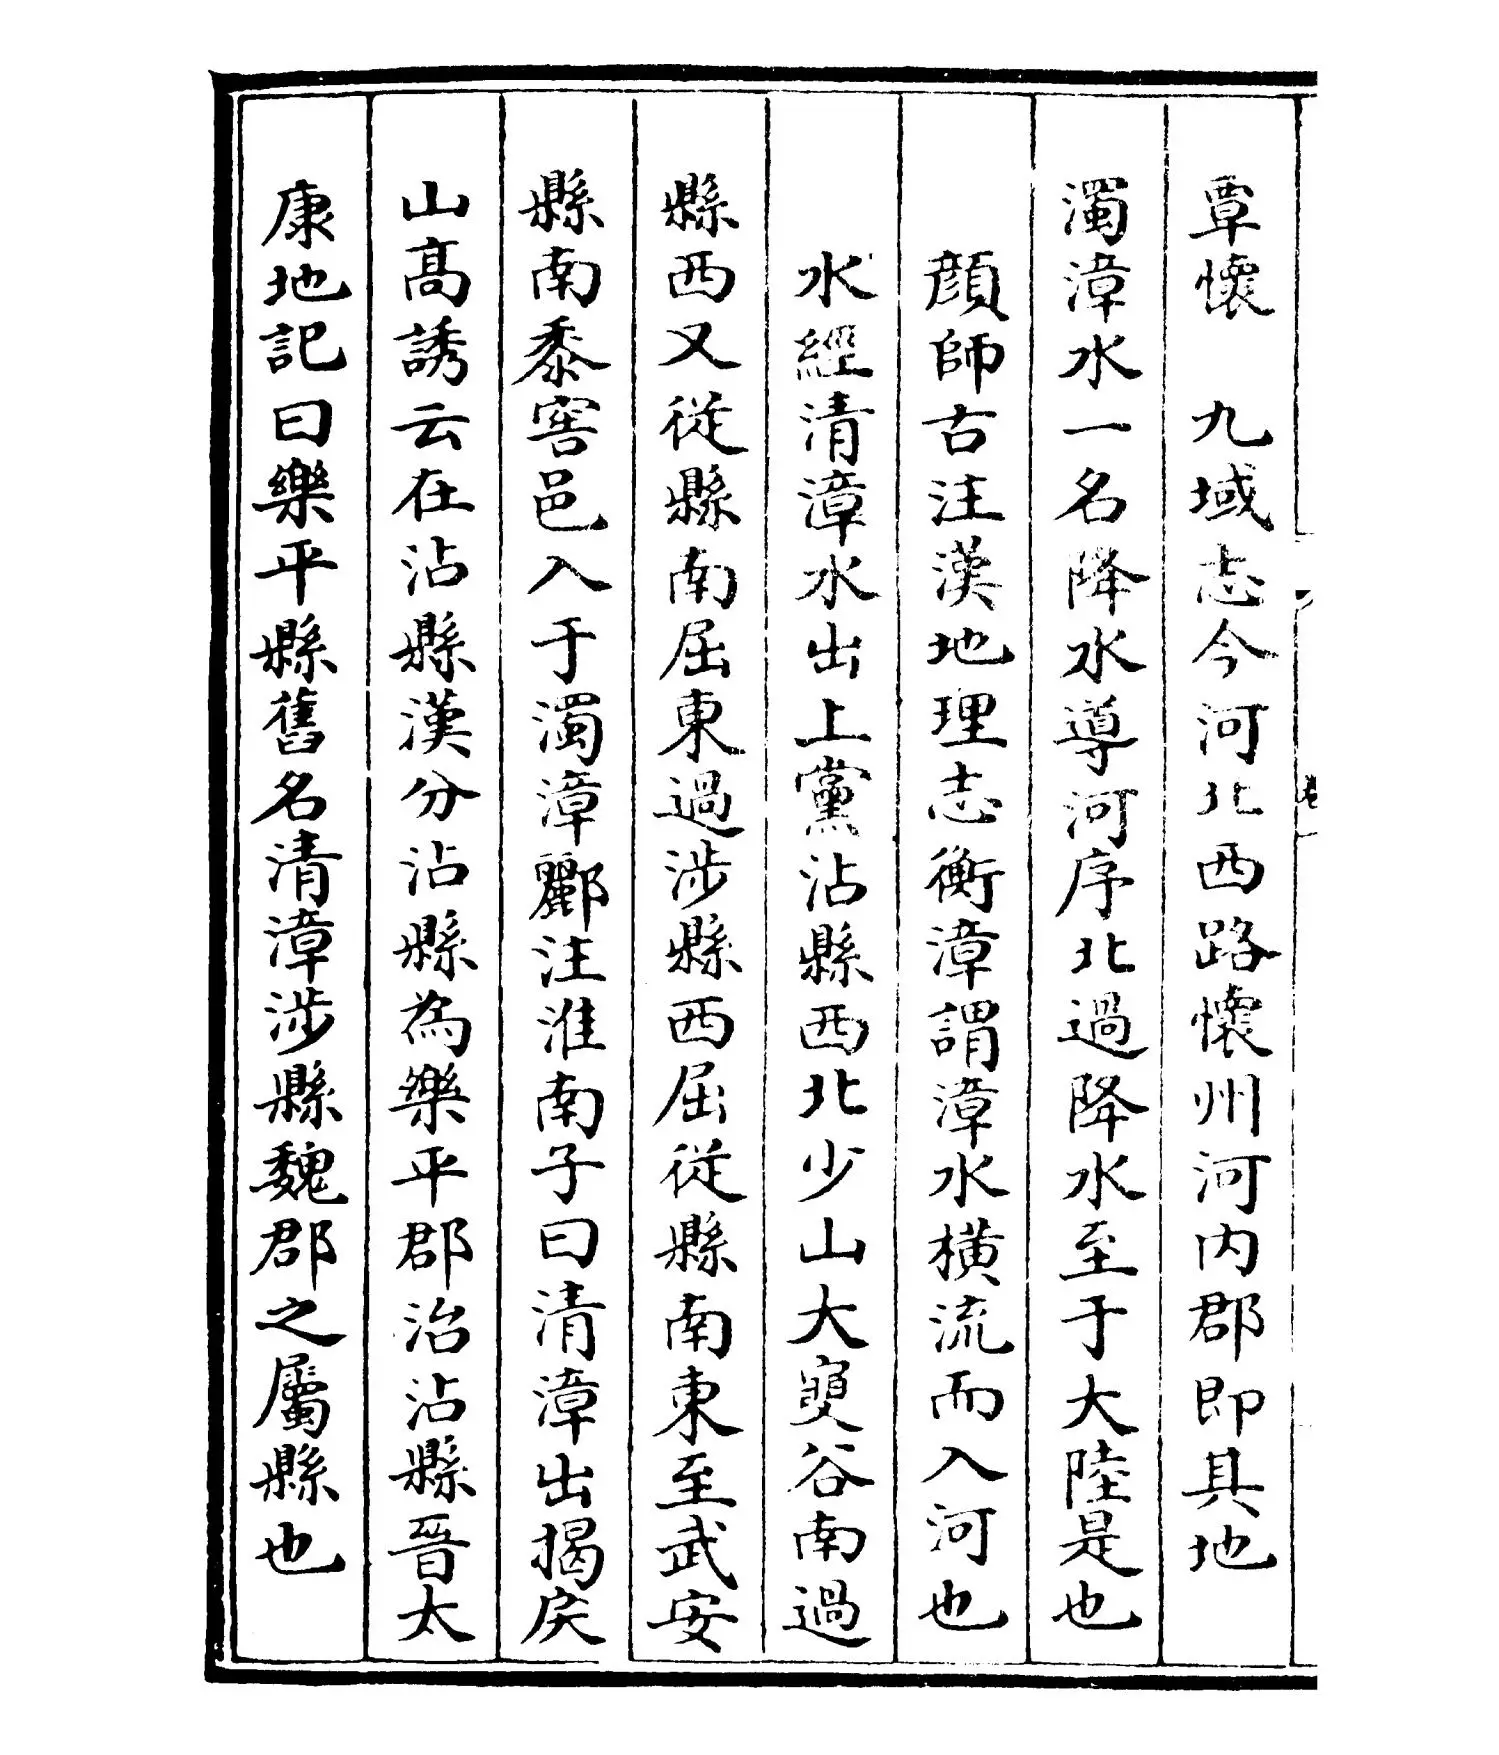 覃懷　九域志今河北西路懷州河内郡即其地
濁漳水一名降水導河序北過降水至于大陸是也
顔師古注漢地理志衡漳謂漳水横流而入河也
水經清漳水出上黨沾縣西北少山大㝱谷南過
縣西又從縣南屈東過涉縣西屈從縣南東至武安
縣南黍窖邑入于濁漳酈注淮南子曰清漳出揭戾
山高誘云在沾縣漢分沾縣為樂平郡治沾縣晉太
康地記曰樂平縣舊名清漳涉縣魏郡之屬縣也